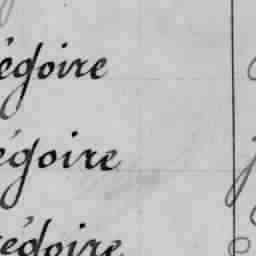 égoire
égoire
régoire